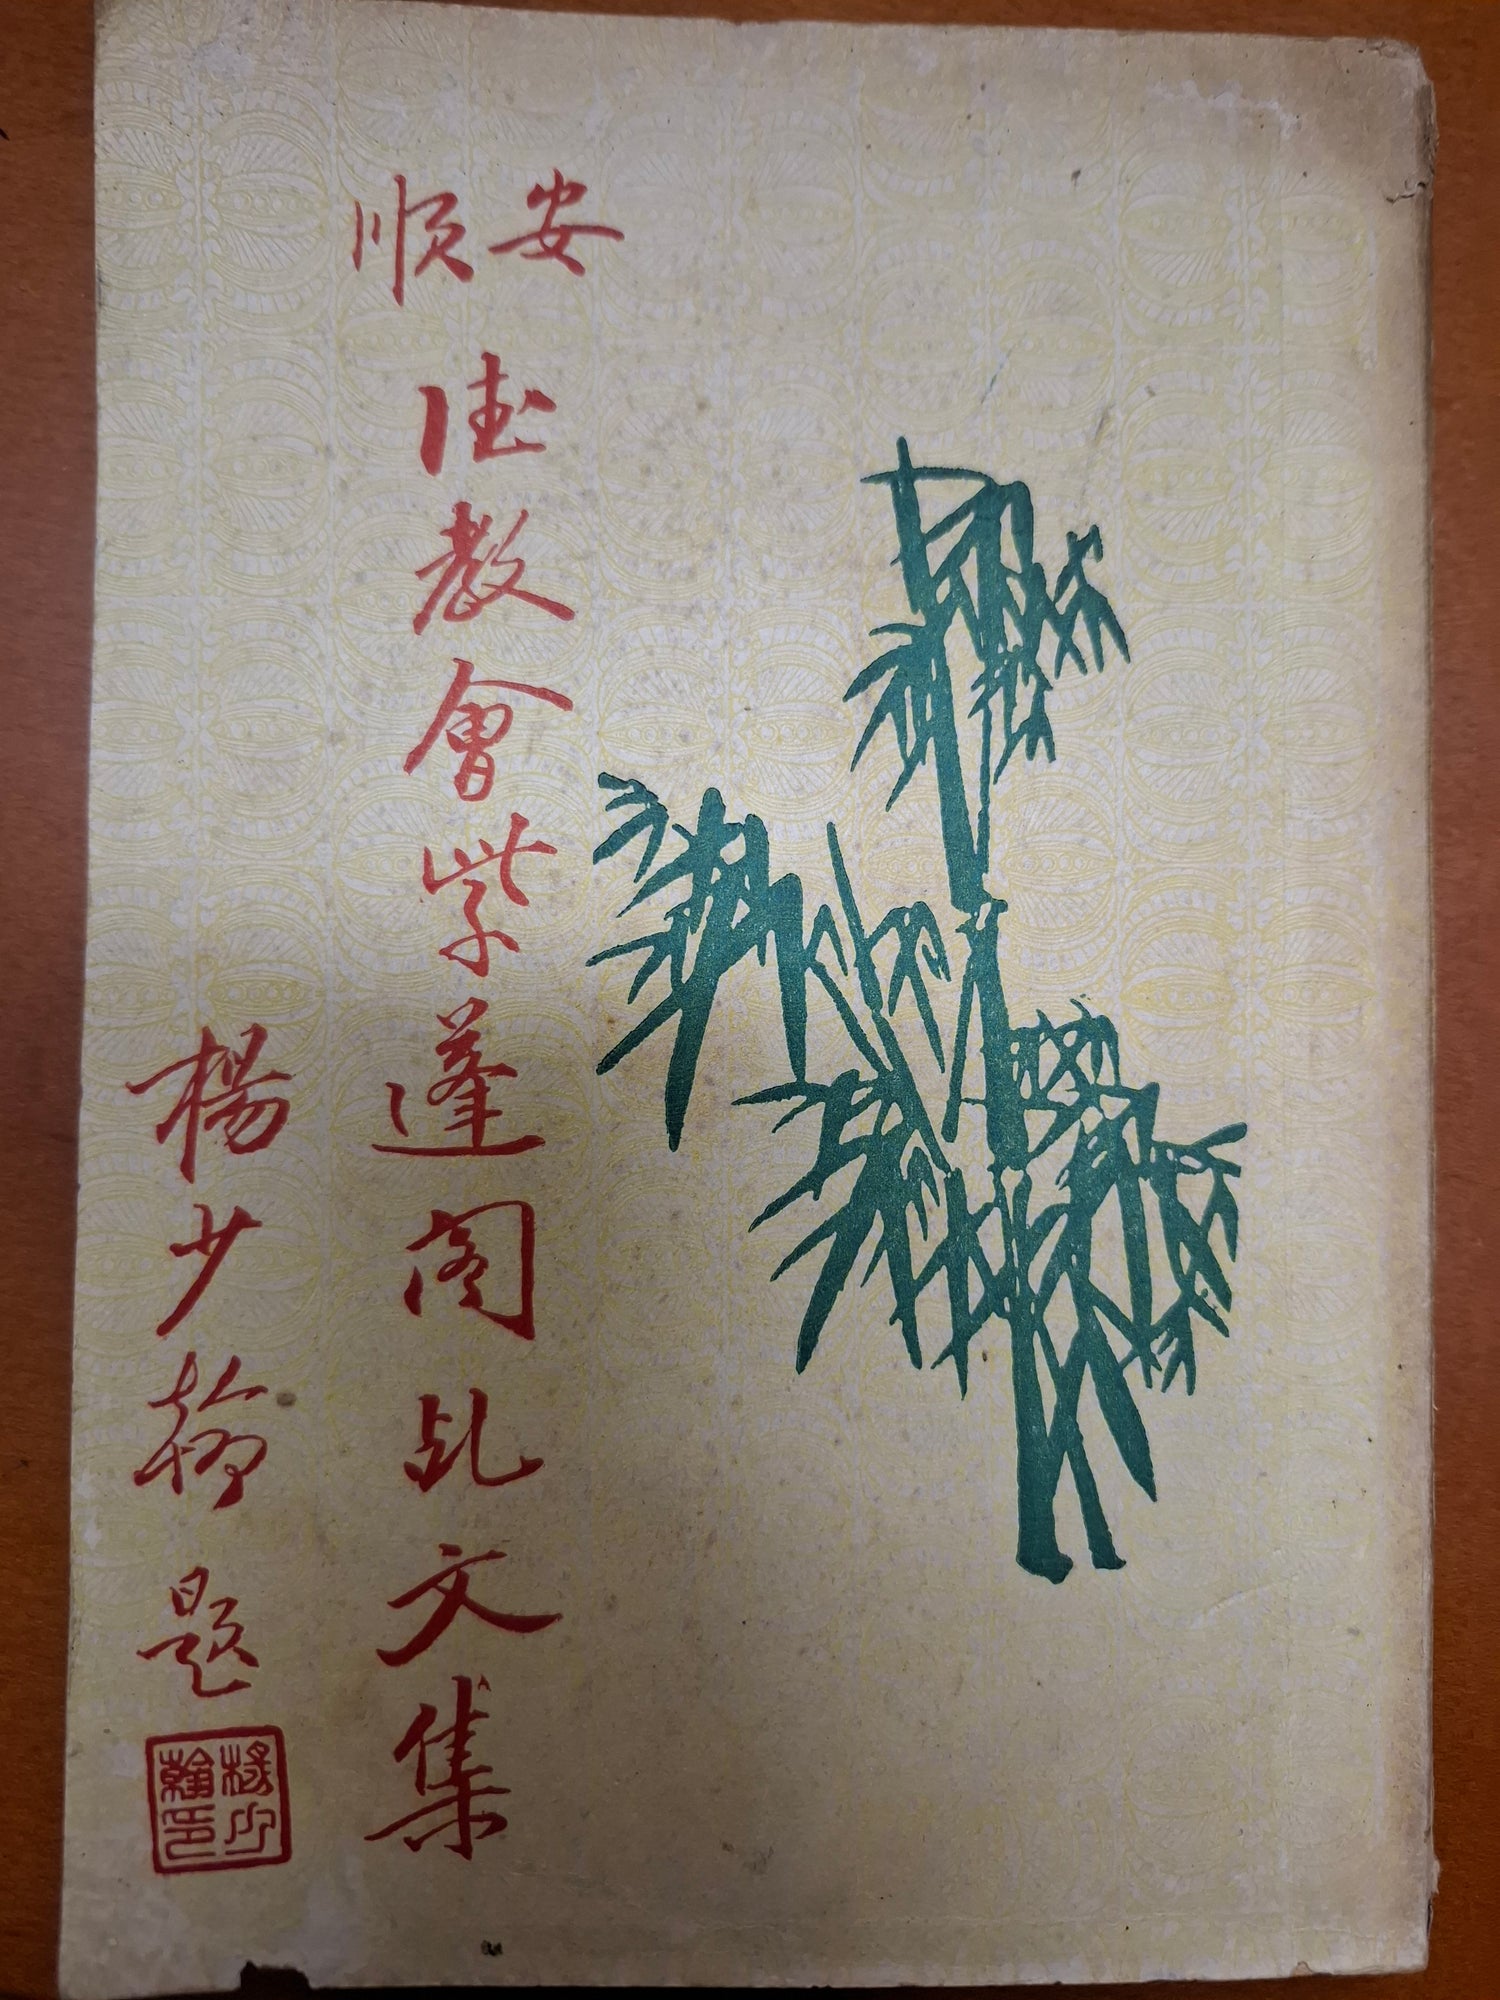 安順
德教會紫蓬阁乩文集
楊少翰題
楊少翰印